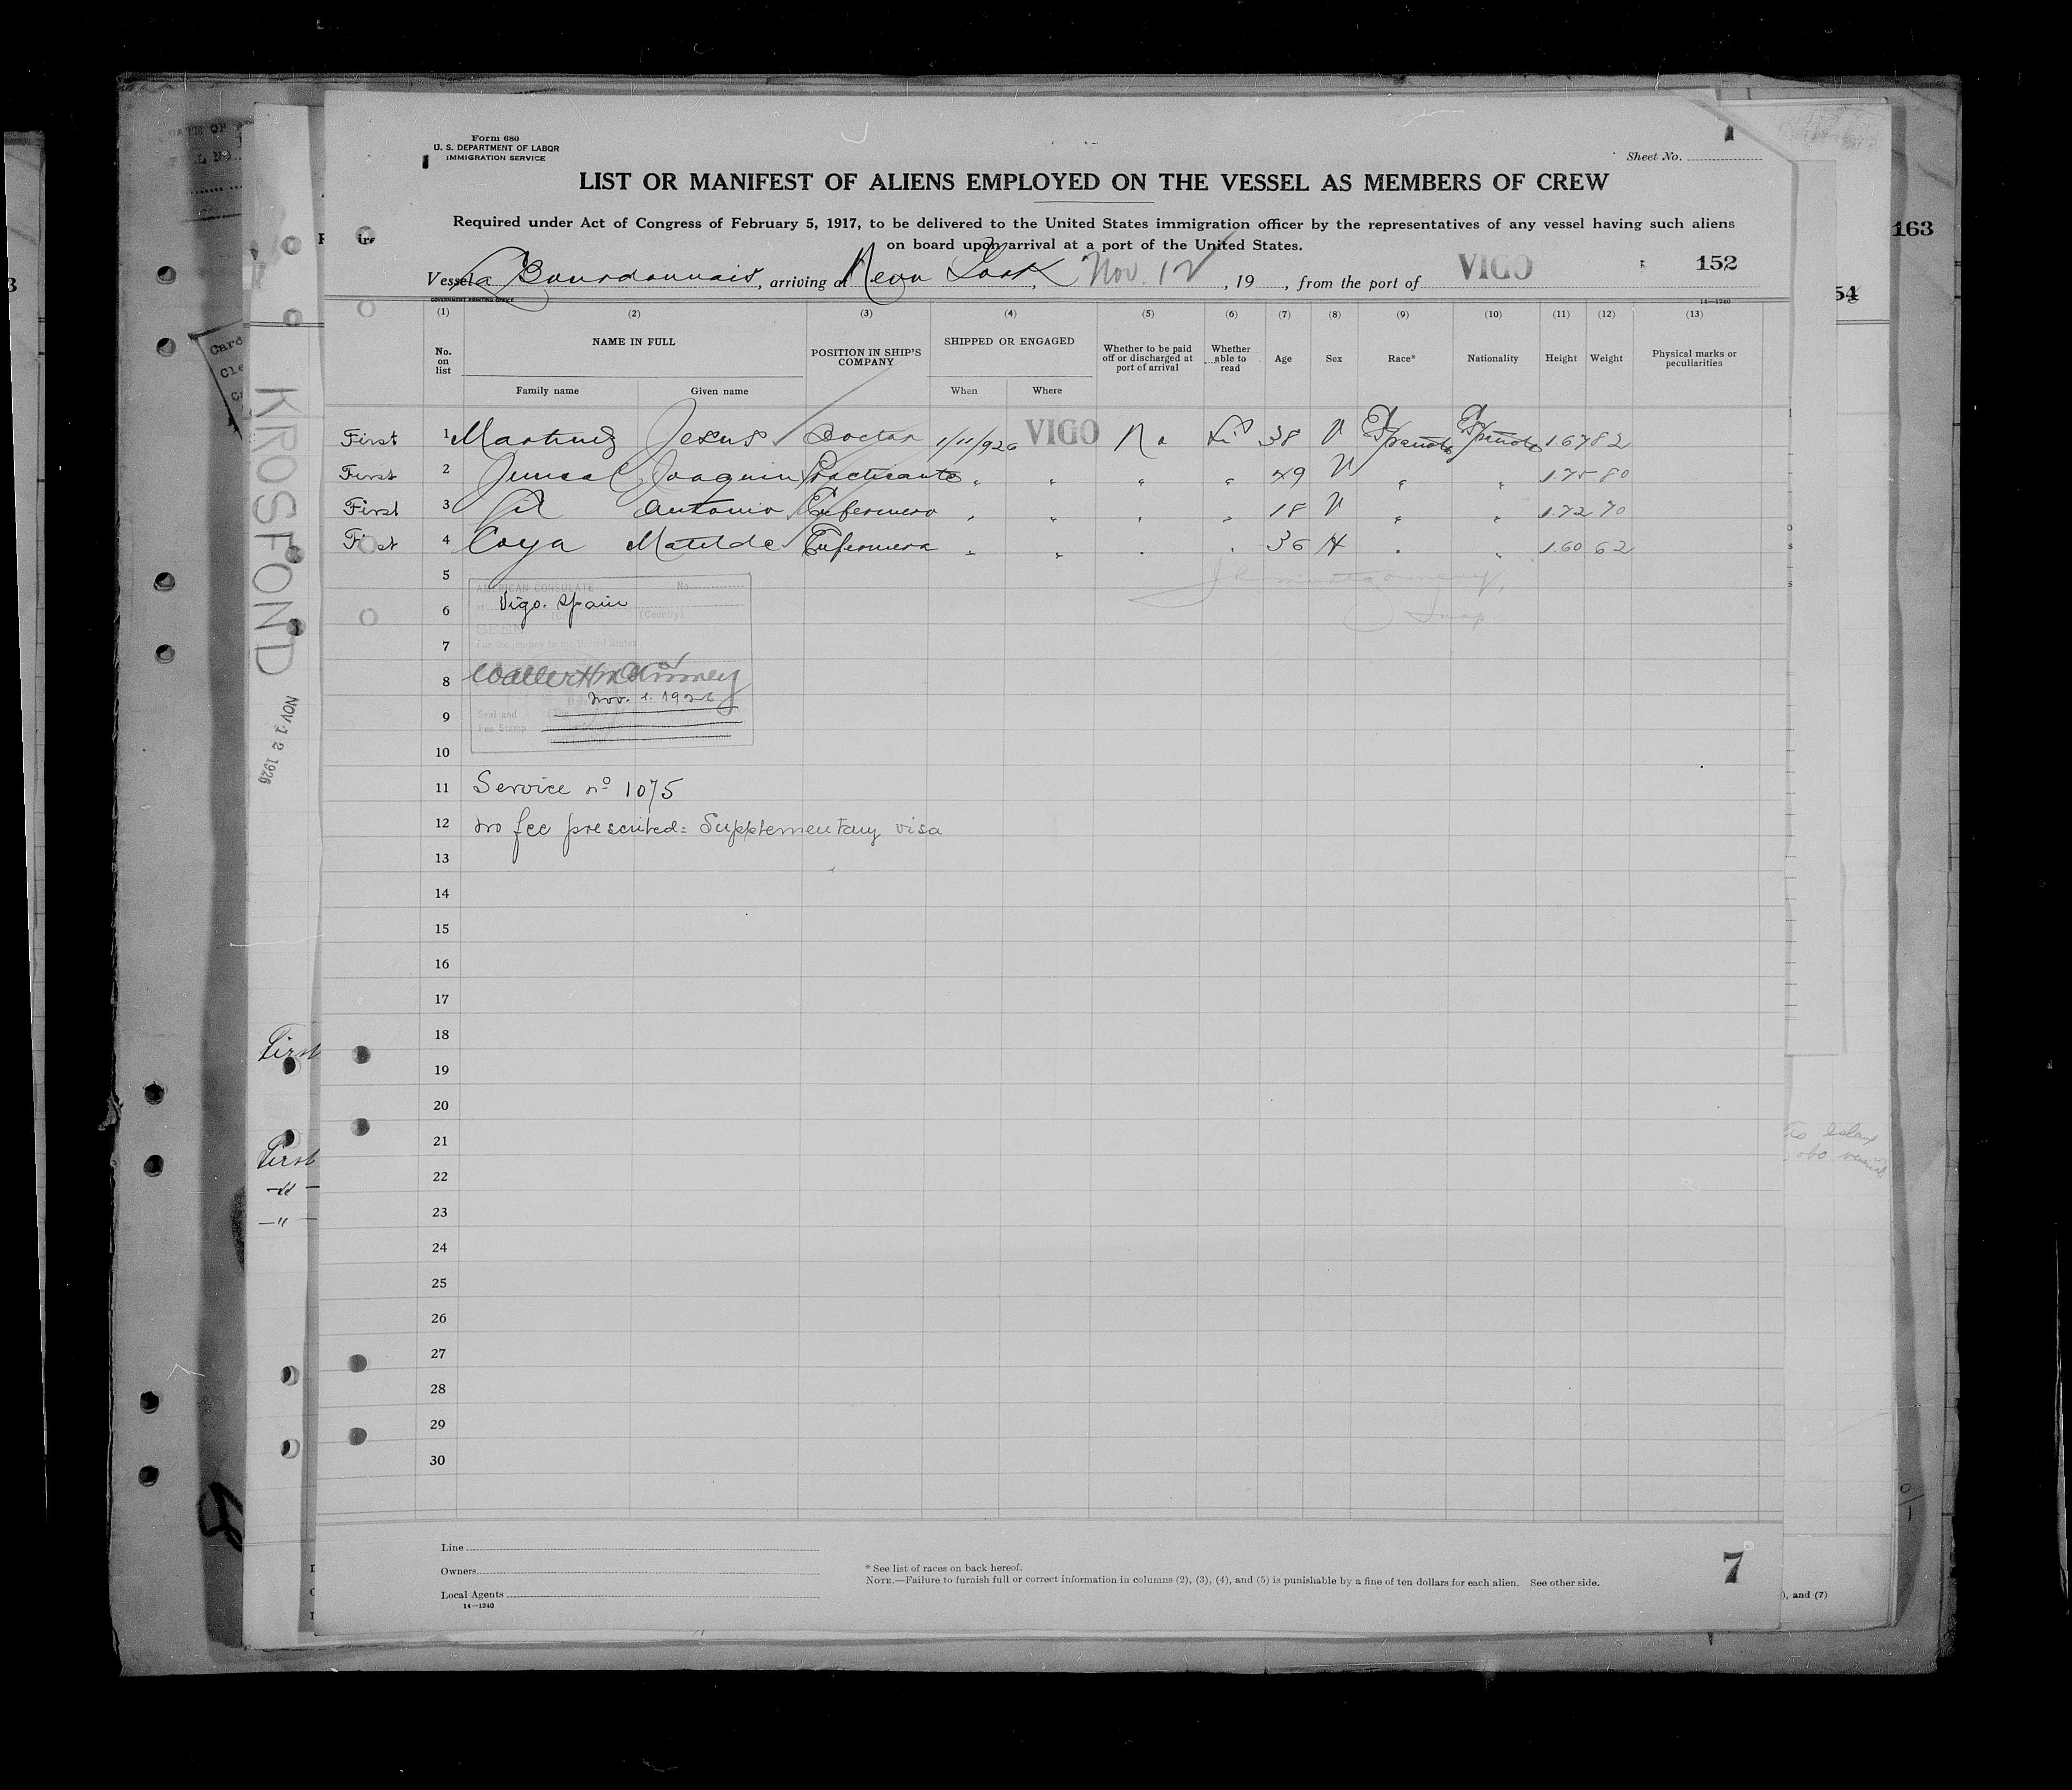 Form 680
U. S. DEPARTMENT OF LABOR
IMMIGRATION SERVICE
Sheet No.
1
LIST OR MANIFEST OF ALIENS EMPLOYED ON THE VESSEL AS MEMBERS OF CREW
Required under Act of Congress of February 5, 1917, to be delivered to the United States immigration officer by the representatives of any vessel having such aliens
on board upon arrival at a port of the United States.
Vessel La Bourdonnais, arriving at New York, Nov. 12, 19 , from the port of VIGO
152
GOVERNMENT PRINTING OFFICE
14—1240
(1) (2) (3) (4) (5) (6) (7) (8) (9) (10) (11) (12) (13)
No. on list
NAME IN FULL
Family name
Given name
POSITION IN SHIP'S COMPANY
SHIPPED OR ENGAGED
When
Where
Whether to be paid off or discharged at port of arrival
Whether able to read
Age
Sex
Race*
Nationality
Height
Weight
Physical marks or peculiarities
First 1 Martinez Jesus Doctor 1/11/926 VIGO No 38 V Española Española 1.67 82
First 2 Joaquin Practicante " " " " 49 V " " 1.75 80
First 3 Gil Antonio Enfermero " " " " 18 V " " 1.72 70
First 4 Coya Matilde Enfermera " " " " 36 H " " 1.60 62
5
AMERICAN CONSULATE No.
6
Vigo. Spain
(Country)
SEEN
7
For the journey to the United States
8
Nov. 1. 1926
9
Seal and
Fee Stamp
10
11 Service nº 1075
12 No fee prescribed: Supplementary visa
13
14
15
16
17
18
19
20
21
22
23
24
25
26
27
28
29
30
Line
Owners
Local Agents
14—1240
* See list of races on back hereof.
NOTE.—Failure to furnish full or correct information in columns (2), (3), (4), and (5) is punishable by a fine of ten dollars for each alien. See other side.
7
KROSFOND
NOV 12 1926
First
First
163
54
), and (7)